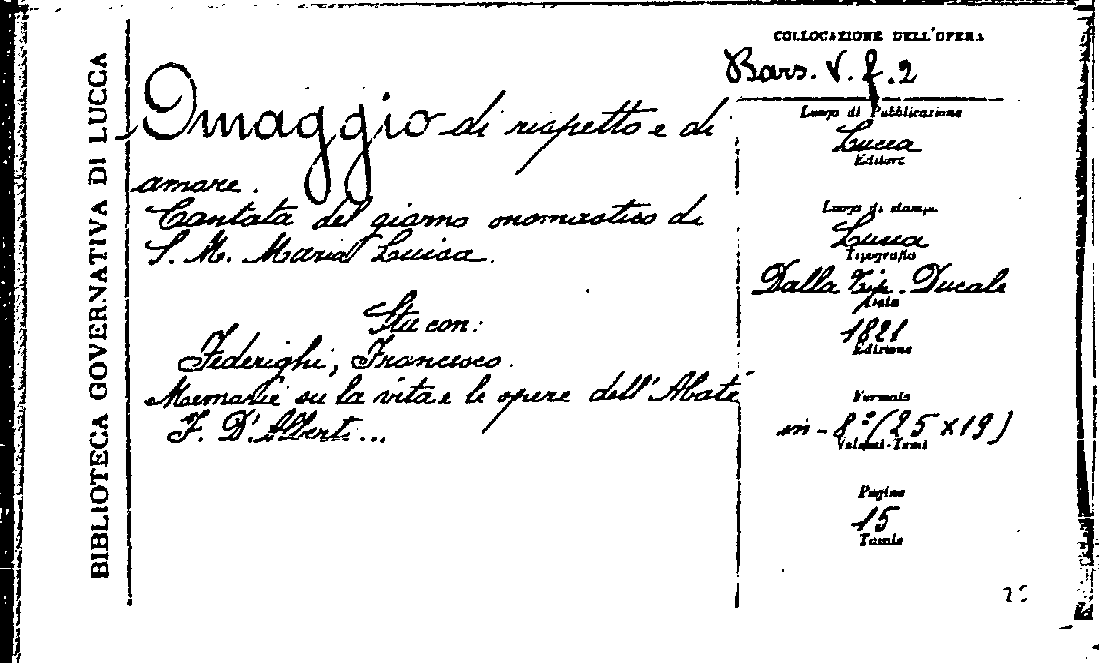 BIBLIOTECA GOVERNATIVA DI LUCCA
Omaggio di rispetto e di
amore.
Cantata del giorno onomastico di
S. M. Maria Luisa.
Sta con:
Federighi, Francesco.
Memorie su la vita e le opere dell'Abate
F. D'Alberti...
COLLOCAZIONE DELL'OPERA
Bars. V. f. 2
Luogo di Pubblicazione
Lucca
Editore
Luogo di stampa
Lucca
Tipografia
Dalla Tip. Ducale
Data
1821
Edizione
Formato
in-8º (25 x 19)
Volumi-Tomi
Pagine
15
Tavole